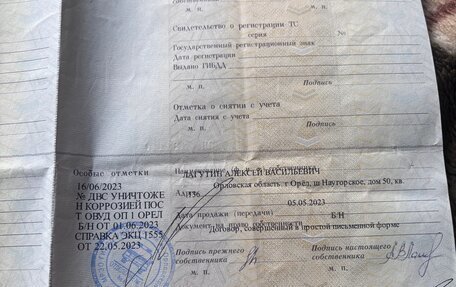 м. п.
м. п.
Свидетельство о регистрации ТС
серия №
Государственный регистрационный знак
Дата регистрации
Выдано ГИБДД
м. п. Подпись
Отметка о снятии с учета
Дата снятия с учета
м. п. Подпись
Особые отметки
16/06/2023
№ ДВС УНИЧТОЖЕ
Н КОРРОЗИЕЙ ПОС
Т ОВУД ОП 1 ОРЕЛ
Б/Н ОТ 01.06.2023
СПРАВКА ЭКЦ 1555
ОТ 22.05.2023
ЛАГУТИН АЛЕКСЕЙ ВАСИЛЬЕВИЧ
Орловская область г Орёл, ш Наугорское, дом 50, кв.
136
05.05.2023
Дата продажи (передачи) Б/Н
Документ на право собственности
Договор, совершенный в простой письменной форме
Подпись прежнего собственника
Подпись настоящего собственника
м. п. м. п.